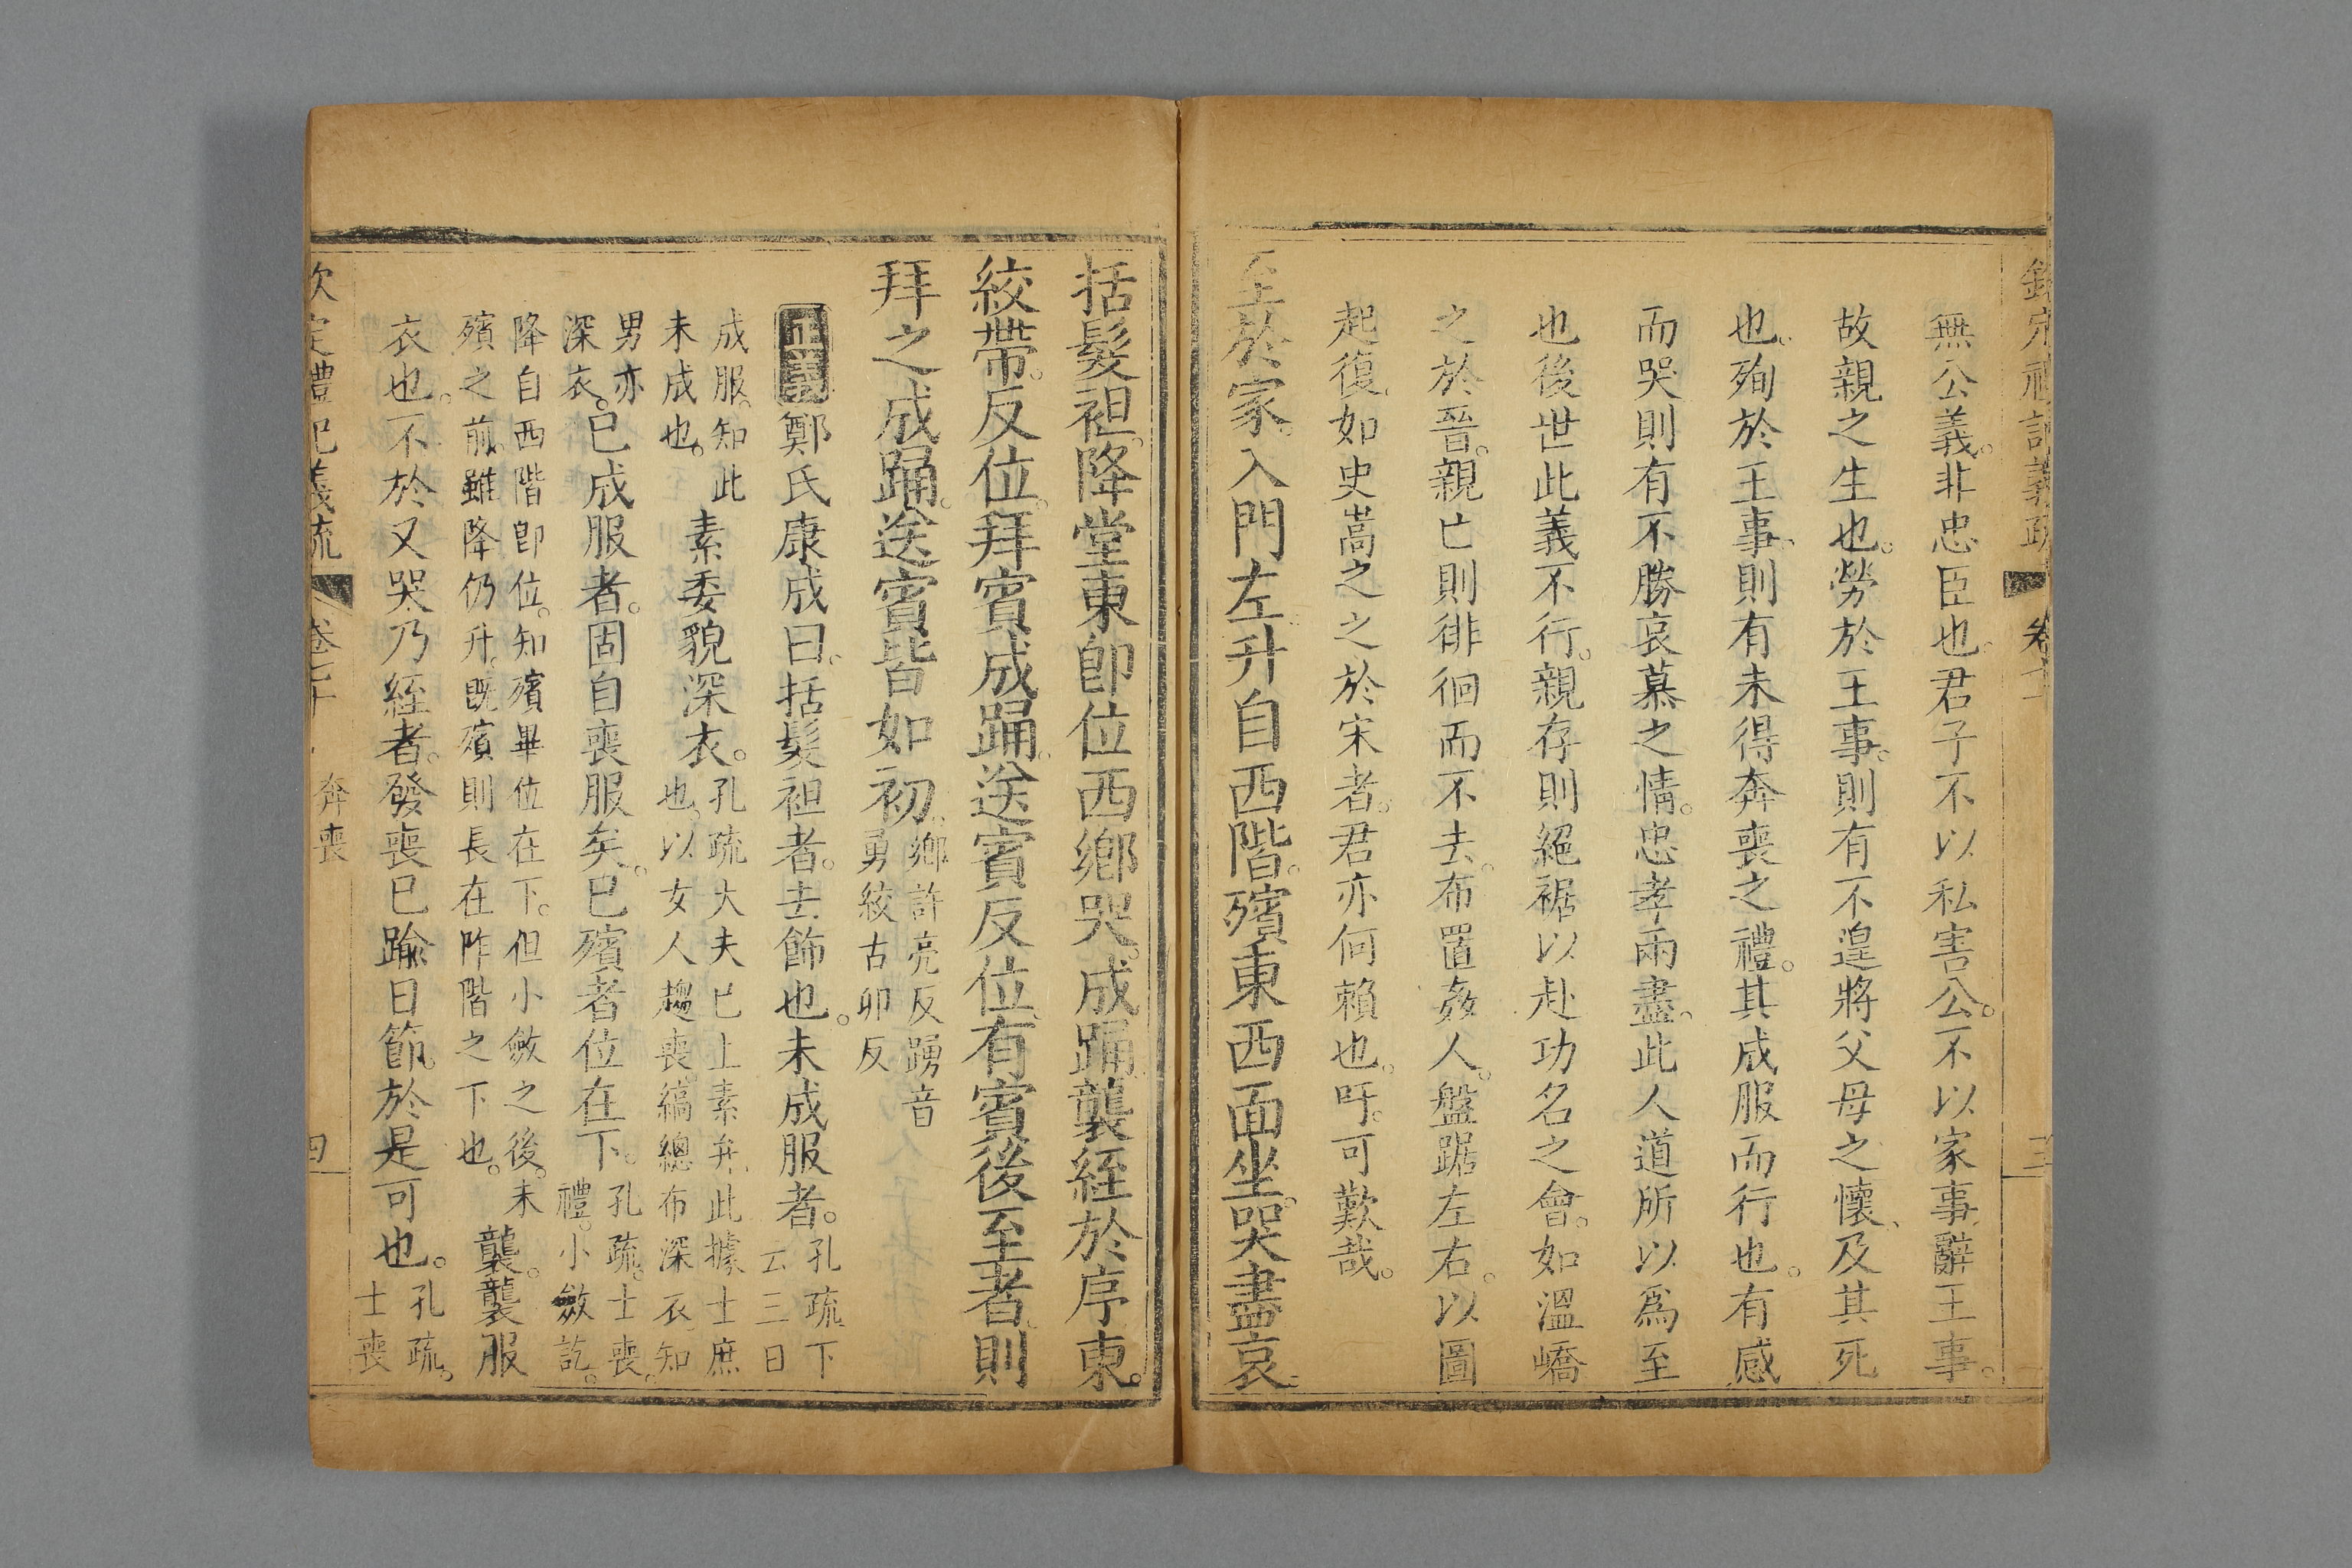 欽定禮記義疏 卷七十 三
無公義。非忠臣也。君子不以私害公。不以家事辭王事。
故親之生也。勞於王事。則有不遑將父母之懷、及其死
也。殉於王事。則有未得奔喪之禮。其成服而行也。有感
而哭則有不勝哀慕之情。忠孝兩盡。此人道所以爲至
也後世此義不行。親存則絕裾以赴功名之會。如溫嶠
之於晉。親亡則徘徊而不去。布置姦人。盤踞左右。以圖
起復。如史嵩之之於宋者。君亦何賴也。吁。可歎哉。
至於家。入門左。升自西階。殯東西面坐。哭盡哀。
括髮袒。降堂東卽位西鄉哭。成踊。襲絰於序東。
絞帶。反位。拜賓成踊。送賓反位。有賓後至者。則
拜之成踊。送賓皆如初。鄉許亮反踴音
勇絞古卯反
正義鄭氏康成曰。括髮袒者。去飾也。未成服者。孔疏下
云三日
成服。知此
未成也。素委貌深衣。孔疏大夫已上素弁。此據士庶
也。以女人趨喪縞總布深衣。知
男亦
深衣。已成服者。固自喪服矣。已殯者位在下。孔疏。士喪。
禮。小斂訖。
降自西階卽位。知殯畢位在下。但小斂之後。未
殯之前。雖降仍升。旣殯則長在阼階之下也。襲。襲服
衣也。不於又哭乃絰者。發喪已踰日節。於是可也。孔疏。
士喪
欽定禮記義疏 卷七十 奔喪 四